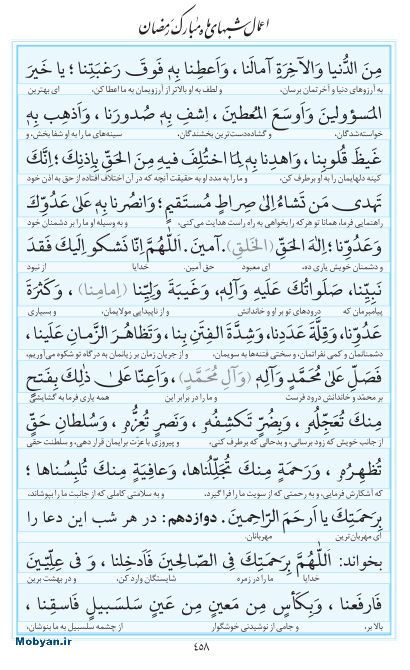 اعمال شبهای ماه مبارک رمضان
مِنَ الدُّنیا وَالآخِرَةِ آمالَنا ، وَاَعطِنا بِهِ فَوقَ رَغبَتِنا ؛ یا خَیرَ
به آرزوهای دنیا و آخرتمان برسان، و لطف به او بالاتر از آرزویمان به ما عطا کن، ای بهترین
المَسؤولینَ وَاَوسَعَ المُعطینَ، اِشفِ بِهِ صُدورَنا ، وَاَذهِب بِهِ
خواسته‌شدگان، و گشاده‌دست‌ترین بخشندگان، سینه‌های ما را به او شفا بخش، و
غَیظَ قُلوبِنا ، وَاهدِنا بِهِ لِمَا اختُلِفَ فیهِ مِنَ الحَقِّ بِاِذنِكَ ؛ اِنَّكَ
کینه دلهایمان را به او برطرف کن، و ما را به مدد او به حقیقت آنچه که در آن اختلاف افتاده از حق به اذن خود
تَهدی مَن تَشاءُ اِلیٰ صِراطٍ مُستَقیمٍ؛ وَانصُرنا بِهِ عَلیٰ عَدُوِّكَ
راهنمایی فرما، همانا تو هرکه را بخواهی به راه راست هدایت می‌کنی، و به وسیله او ما را بر دشمنان خود
وَعَدُوِّنا؛ اِلٰهَ الحَقِّ (الخَلقِ). آمینَ. اَللّٰهُمَّ اِنّا نَشکو اِلَیكَ فَقدَ
و دشمنان خویش یاری ده، ای معبود حق آمین. خدایا از نبود
نَبِیِّنا، صَلَواتُكَ عَلَیهِ وَآلِهِ، وَغَیبَةَ وَلِیِّنا (اِمامِنا) ، وَکَثرَةَ
پیامبرمان که درودهای تو بر او و خاندانش و از ناپیدایی مولایمان، و بسیاری
عَدُوِّنا، وَقِلَّةَ عَدَدِنا، وَشِدَّةَ الفِتَنِ بِنا ، وَتَظاهُرَ الزَّمانِ عَلَینا ،
دشمنانمان و کمی نفراتمان، و سختی فتنه‌ها به سویمان، و از جریان زمان بر زیانمان به درگاه تو شکوه می‌آوریم،
فَصَلِّ عَلیٰ مُحَمَّدٍ وَآلِهِ (وَآلِ مُحَمَّدٍ) ، وَاَعِنّا عَلیٰ ذٰلِكَ بِفَتحٍ
بر محمد و خاندانش درود فرست و ما را در برابر این همه یاری فرما به گشایشی
مِنكَ تُعَجِّلُهُ، وَبِضُرٍّ تَکشِفُهُ ، وَنَصرٍ تُعِزُّهُ، وَسُلطانِ حَقٍّ
از جانب خویش که زود برسانی، و بدحالی که برطرف کنی، و پیروزی با عزّت برایمان قرار دهی، و سلطنت حقی
تُظهِرُهُ ، وَرَحمَةٍ مِنكَ تُجَلِّلُناها، وَعافِیَةٍ مِنكَ تُلبِسُناها ؛
که آشکارش فرمایی، و به رحمتی که از سویت ما را فرا گیرد، و به سلامتی کاملی که از جانبت ما را بپوشاند،
بِرَحمَتِكَ یا اَرحَمَ الرّاحِمینَ. دوازدهم: در هر شب این دعا را
ای مهربان‌ترین مهربانان.
بخواند: اَللّٰهُمَّ بِرَحمَتِكَ فِی الصّالِحینَ فَاَدخِلنا ، وَ فی عِلِّیّینَ
خدایا ما را در زمره شایستگان وارد کن، و در بهشت برین
فَارفَعنا ، وَ بِکَأسٍ مِن مَعینٍ مِن عَینٍ سَلسَبیلٍ فَاسقِنا ،
بالا بر، و جامی از نوشیدنی خوشگوار از چشمه سلسبیل به ما بنوشان،
۴۵۸
Mobyan.ir